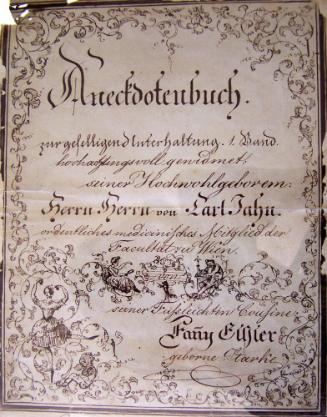 Aneckdotenbuch.
zur geselligend Unterhaltung. 1. Band.
hochachtungsvoll gewidmet,
seiner Hochwohlgeborem:
Herrn Herrn von Carl Jahn.
ordentliches medicinisches Mitglied der
Facultät zu Wien.
seiner Fussleichten Cousine
Fañy Elßler
geborne Starke